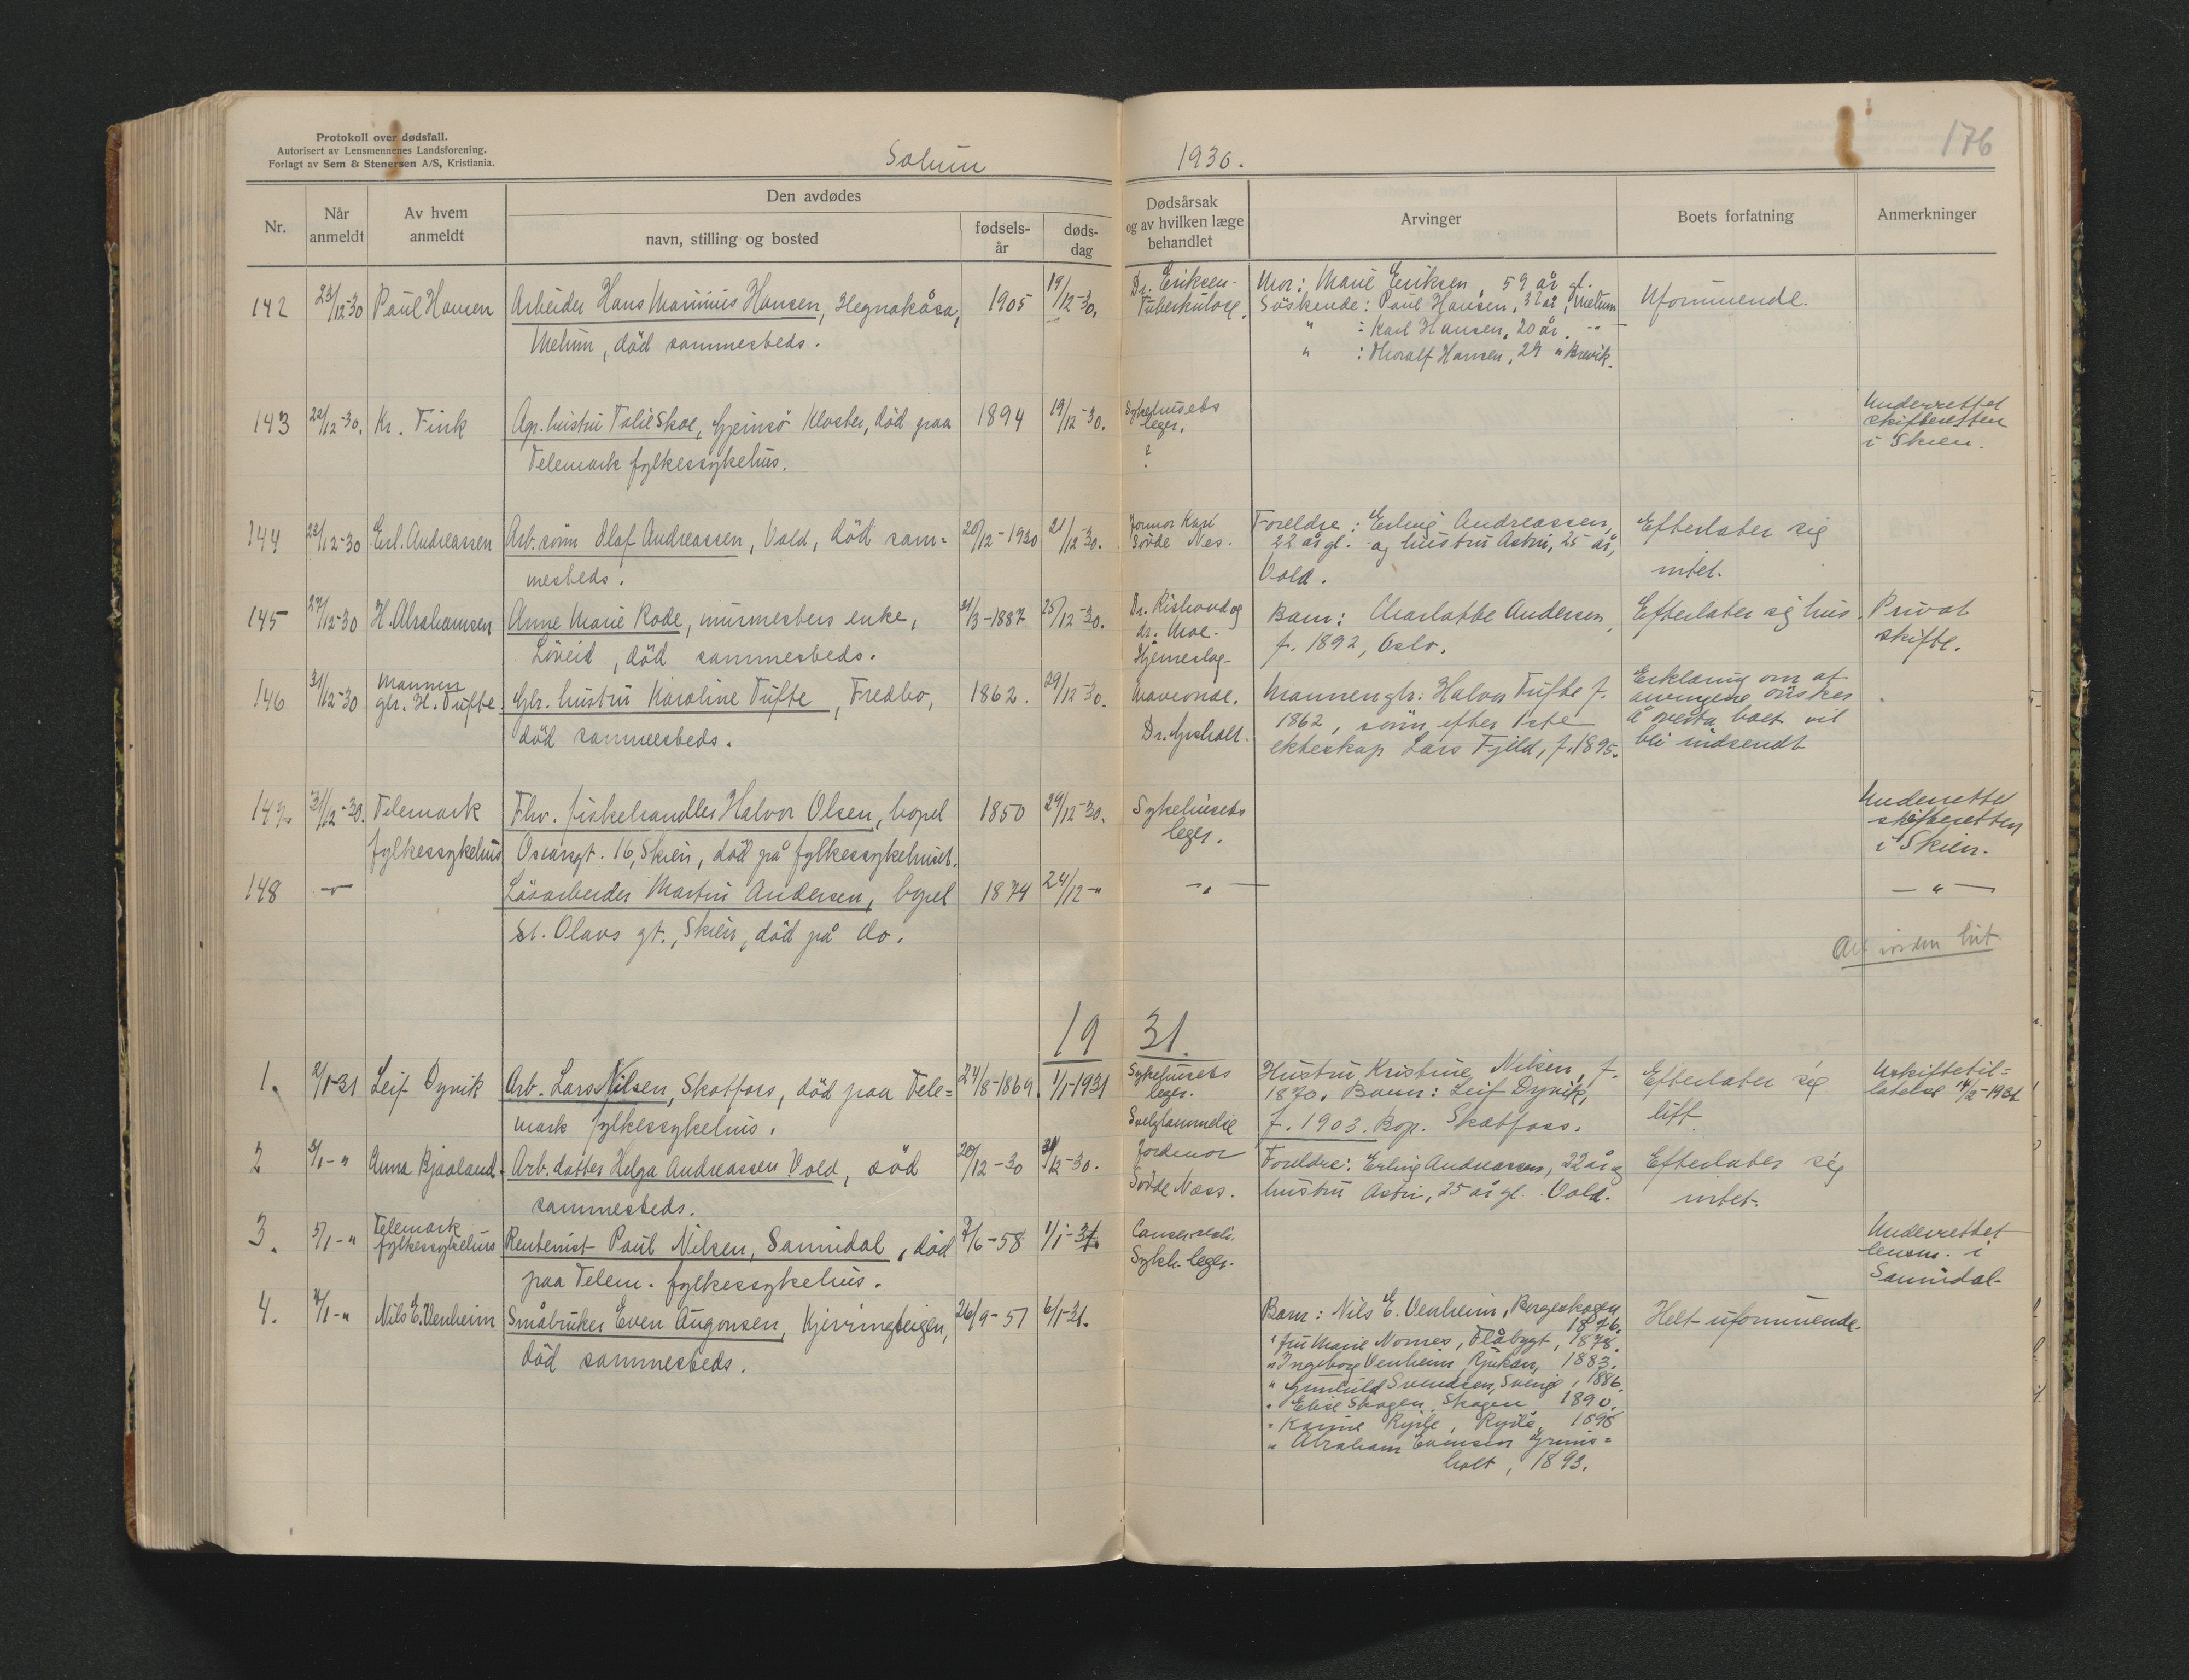 Protokoll over dødsfall.
Autorisert av Lensmennenes Landsforening.
Forlagt av Sem & Stenersen A/S, Kristiania.
Solum
1930.
176
Nr.
Når anmeldt
Av hvem anmeldt
Den avdødes
navn, stilling og bosted
fødsels-år
døds-dag
Dødsårsak og av hvilken læge behandlet
Arvinger
Boets forfatning
Anmerkninger
142 23/12-30 Paul Hansen Arbeider Hans Marinius Hansen, Hegnakåsa, 1905 19/12-30. Dr. Eriksen - Mor: Marie Eriksen, 59 år gl. Uformuende.
Melum, død sammesteds. Tuberkulose. Söskende: Paul Hansen, 32 år, Melum
" : Karl Hansen, 20 år. -"-
" : Thoralf Hansen, 29 " Brevik.
143 22/12-30. Kr. Fink Agr. hustru Talie Skoe, Gjemsö Kloster, död paa 1894 19/12-30. Sykehusets leger. Underrettet skifteretten i Skien.
Telemark fylkessykehus. ?
144 23/12-30 Erl. Andreassen Arb. sönn Olaf Andreassen, Vold, död sam= 20/12-1930 21/12-30. Jormor Kari Foreldre: Erling Andreassen, Efterlater sig
mesteds. Nes. 22 år gl. og hustru Astri, 25 år, intet.
Vold.
145 27/12-30 H. Abrahamsen Anne Marie Rode, murmesters enke, 31/3-1887 25/12-30. Dr. Rishovd og Barn: Charlotte Andersen, Efterlater sig hus. Privat
Löveid, död sammesteds. dr. Moe. f. 1892, Oslo. skifte.
Hjerneslag.
146 31/12-30 Mannen Gbr. hustru Karoline Tufte, Fredbo, 1862. 29/12-30. Maveonde. Mannen gbr. Halvor Tufte f. Erklæring om at
gbr. H. Tufte död sammesteds. Dr. Gjisholt. 1862, sönn efter 1ste arvingene önsker
ekteskap Lars Fjeld, f. 1895. å overta boet vil
bli indsendt
147. 31/12-30. Telemark Fhv. fiskehandler Halvor Olsen, bopel 1850 29/12-30. Sykehusets Underrettet
fylkessykehus Oscarsgt. 16, Skien, död på fylkessykehuset. leger. skifteretten
i Skien.
148 -"- Lösarbeider Martin Andersen, bopel 1874 24/12-" -"- -"-
St. Olavs gt., Skien, död på do.
Alt i orden hit
19 31.
1. 2/1-31 Leif Dyvik Arb. Lars Nilsen, Skotfoss, död paa Tele= 24/8-1869. 1/1-1931 Sykehusets Hustru Kristine Nilsen, f. Efterlater sig Uskiftetil=
mark fylkessykehus. leger. 1870. Barn: Leif Dyvik, litt. latelse 14/2-1931
f. 1903. Bop. Skotfoss.
2 3/1-" Anna Bjaaland. Arb. datter Helga Andreassen Vold, död 20/12-30 31/12-30. Jordmor Foreldre: Erling Andreassen, 22 år og Efterlater sig
sammesteds. Næss. hustru Astri, 25 år gl. Vold. intet.
3. 5/1-" Telemark Rentenist Paul Nilsen, Sannidal, död 7/6-58 1/1-31. Cancer Underrettet
fylkessykehus paa Telem. fylkessykehus. Sykeh. leger. lensm. i
Sannidal.
4. 7/1-" Nils E. Venheim Småbruker Even Augonsen, Kjerringteigen, 26/9-51 6/1-31. Barn: Nils E. Venheim, Bergeskogen Helt uformuende.
död sammesteds. 1876.
" fru Marie Nomes, Flåbygt, 1878.
" Ingeborg Venheim, Rjukan, 1883.
" Gunhild Svendsen, Sverige, 1886.
" Elise Skogen, Skogen, 1890.
" Karine
" Abraham Evensen Grinis=
holt, 1893.